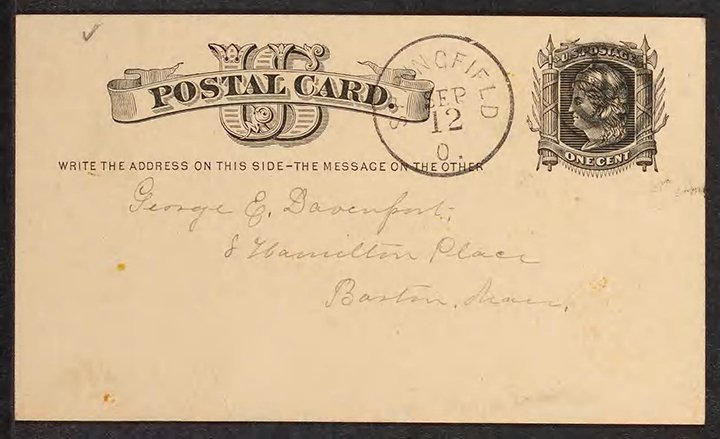 US
POSTAL CARD.
SPRINGFIELD
SEP
12
O.
U.S. POSTAGE
ONE CENT
WRITE THE ADDRESS ON THIS SIDE-THE MESSAGE ON THE OTHER
George E. Davenport,
8 Hamilton Place
Boston, Mass.